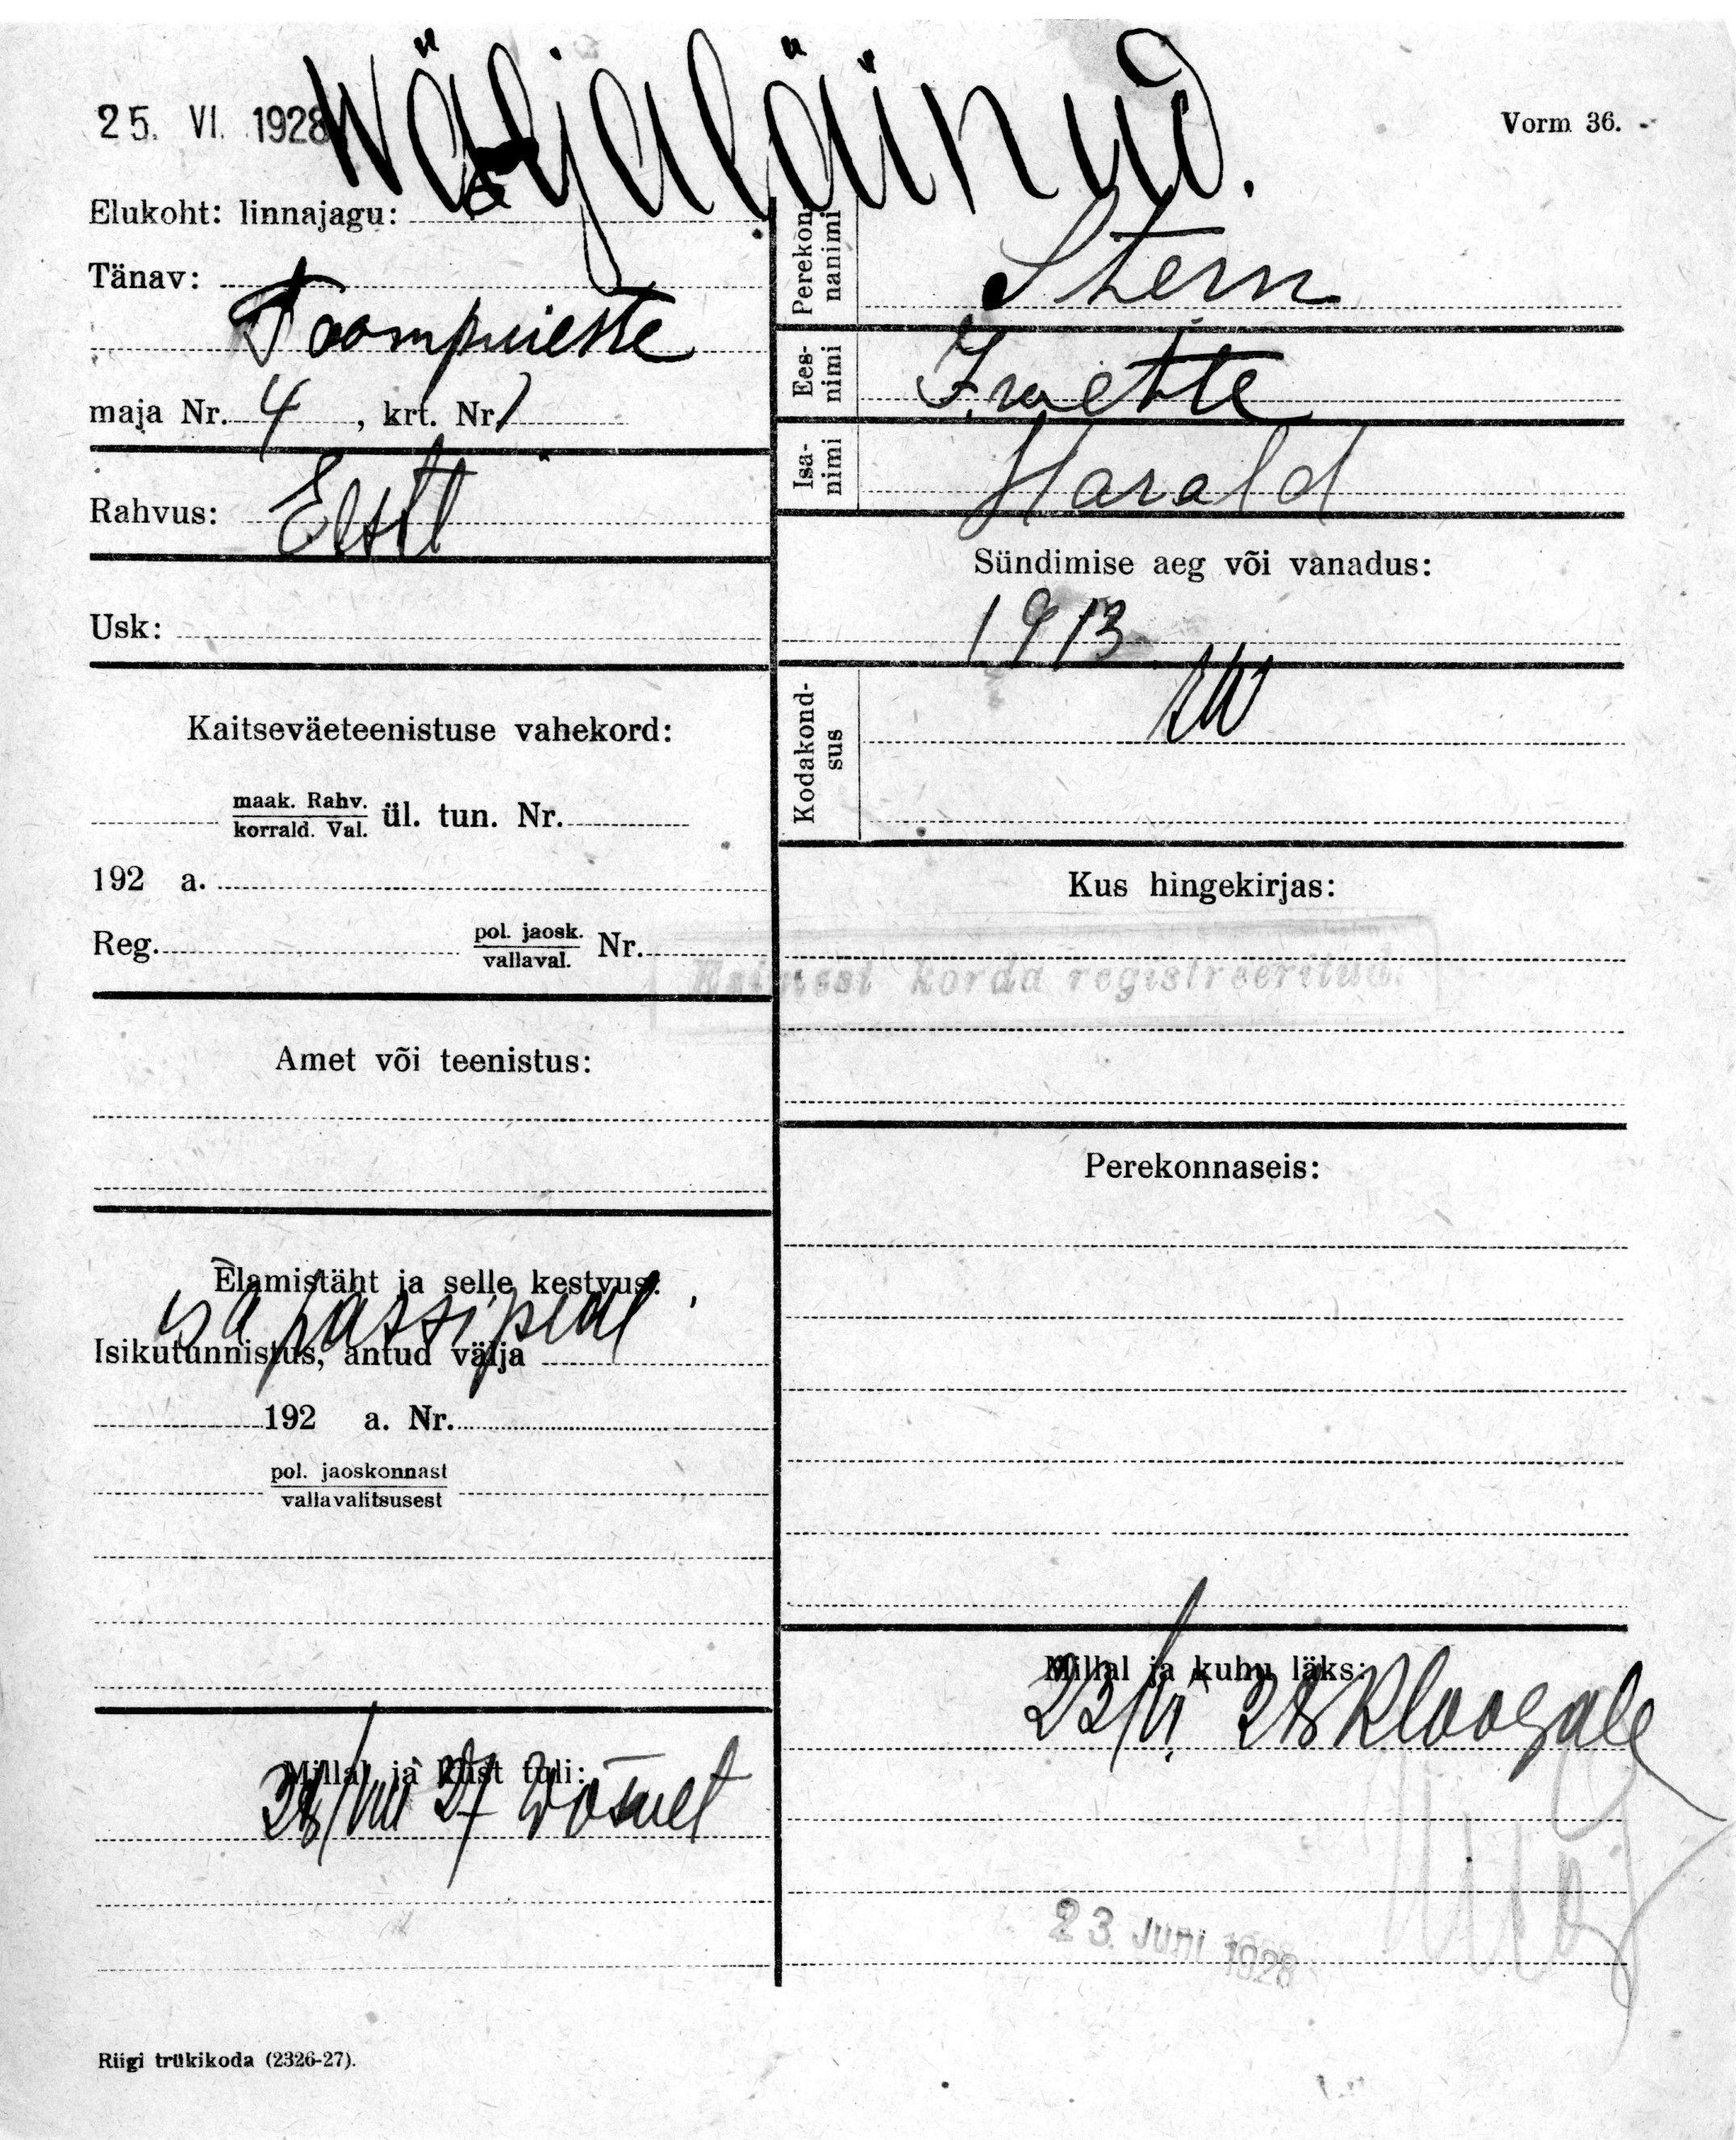 Wäljaläinud.
25. VI. 1928
Vorm 36.
Elukoht: linnajagu:
Tänav:
Toompuieste
maja Nr. 4, krt. Nr. 1
Rahvus: Eesti
Usk:
Kaitseväeteenistuse vahekord:
maak. Rahv.
korrald. Val. ül. tun. Nr.
192 a.
Reg. pol. jaosk.
vallaval. Nr.
Amet või teenistus:
Elamistäht ja selle kestvus:
isa passi peal
Isikutunnistus, antud välja
192 a. Nr.
pol. jaoskonnast
vallavalitsusest
Millal ja kust tuli:
28/VIII 27 Wõsuelt
Perekonnanimi Stern
Eesnimi
Isanimi Harald
Sündimise aeg või vanadus:
1913
Kodakondsus
Kus hingekirjas:
Esimest korda registreeritud.
Perekonnaseis:
Millal ja kuhu läks:
23/VI 28 Kloogale
23. Juni 1928
Riigi trükikoda (2326-27).